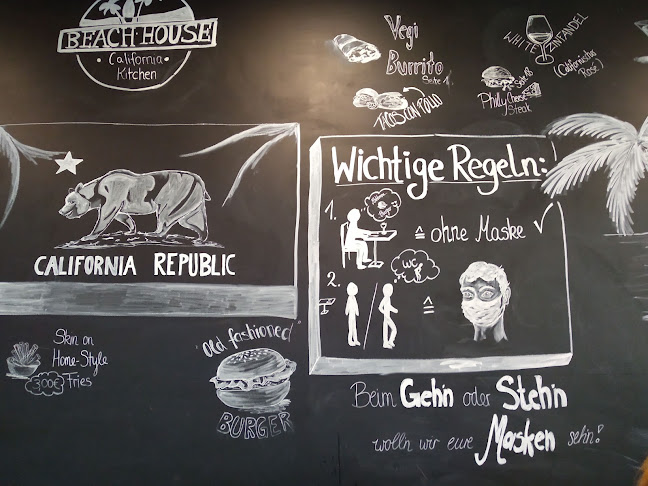 BEACH HOUSE
California
Kitchen
Vegi
Burrito
Seite 1
WHITE ZINFANDEL
(Californisches
Rosé)
TACOS CON POLLO
Philly Cheese
Steak
CALIFORNIA REPUBLIC
Wichtige Regeln:
1.
≙ ohne Maske ✓
2.
WC
≙
Skin on
Home-Style
Fries
3,00€
"Old fashioned"
BURGER
Beim Geh'n oder Steh'n
wolln wir eure Masken seh'n!